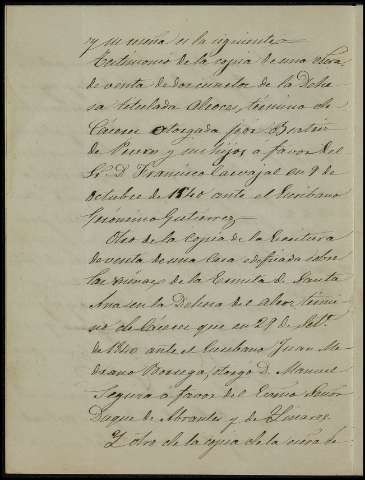 y su reseña es la siguiente
Testimonio de la copia de una
de venta de de la Dehe-
sa titulada Alcores, término de
Cáceres otorgada por
de y sus hijos a favor del
Sr. D. Francisco Carvajal en 9 de
Octubre de 1840 ante el Escribano
Gerónimo Gutierrez
Otro de la copia de la Escritura
de venta de una Casa edificada sobre
las ruinas de la Ermita de Santa
Ana en la Dehesa del térmi-
no de Cáceres que en 29 de
de 1840 ante el Escribano Juan Me-
drano otorgó D. Manuel
Segura a favor del Excmo Señor
Duque de Abrantes y de Linares
Y otro de la copia de la